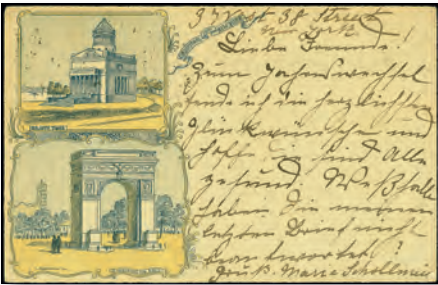 37 West 38 Street
New York
Liebe Freunde!
Zum Jahreswechsel
sende ich die herzlichsten
Glückwünsche und
hoffe Sie sind Alle
gesund. Weßhalb
haben Sie meinen
letzten Brief nicht
beantwortet?
Gruß. Maria Schollmeier
GRANTS TOMB